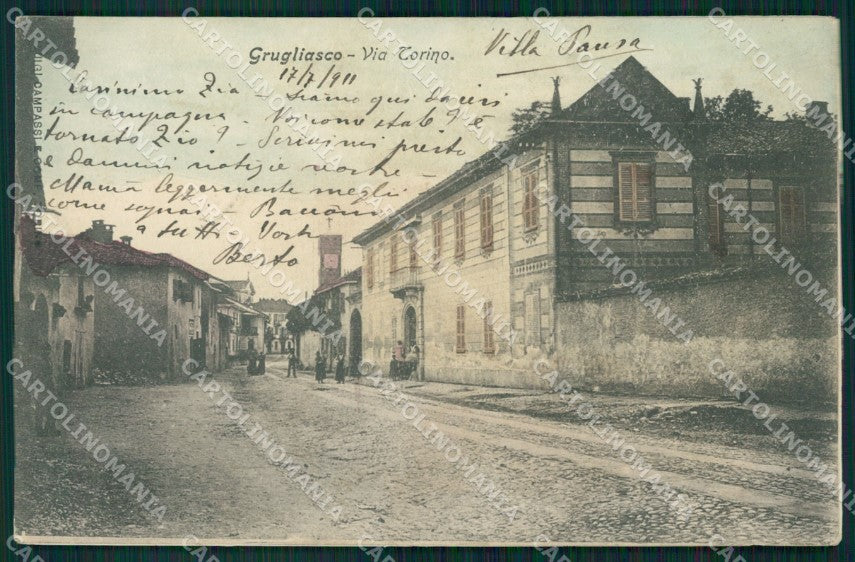 Grugliasco - Via Torino.
Villa Pansa
17/7/911
Carissima Zia - Siamo qui da ieri
in campagna - Voi come state? È
tornato Zio? - Scrivimi presto
e dammi notizie vostre -
Mamà leggermente meglio
come sogna - Bacconi
a tutti - Vostro
Berto
CARTOLINOMANIA